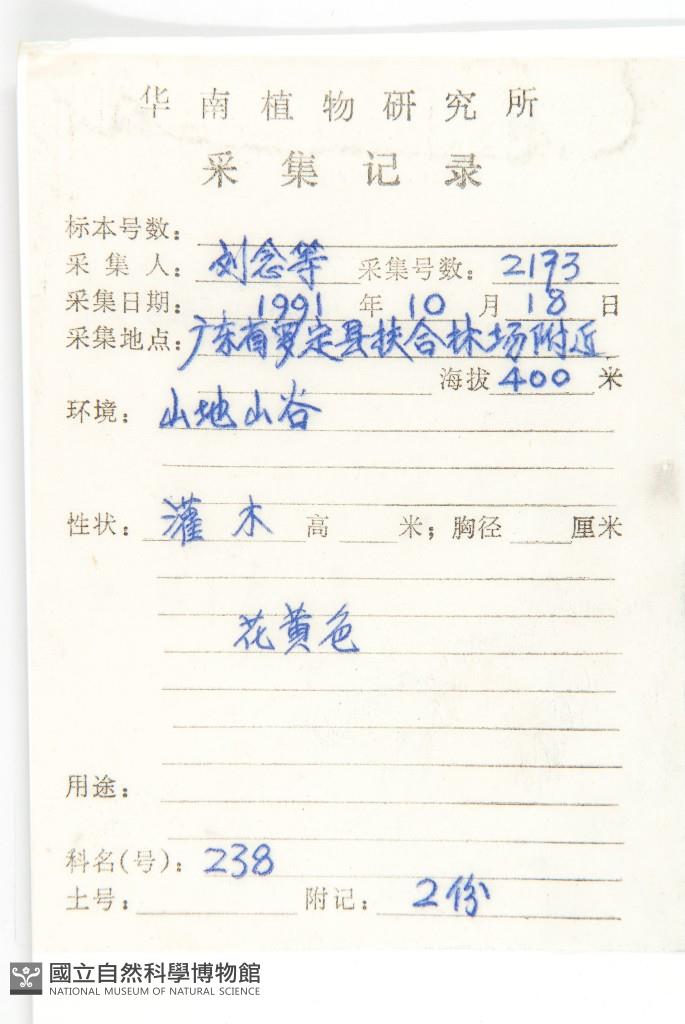 华南植物研究所
采集记录
标本号数：
采集人：刘念等 采集号数：2193
采集日期：1991年10月18日
采集地点：广东省罗定县扶合林场附近
海拔400米
环境：山地山谷
性状：灌木 高 米；胸径 厘米
花黄色
用途：
科名(号)：238
土号： 附记：2份
國立自然科學博物館
NATIONAL MUSEUM OF NATURAL SCIENCE